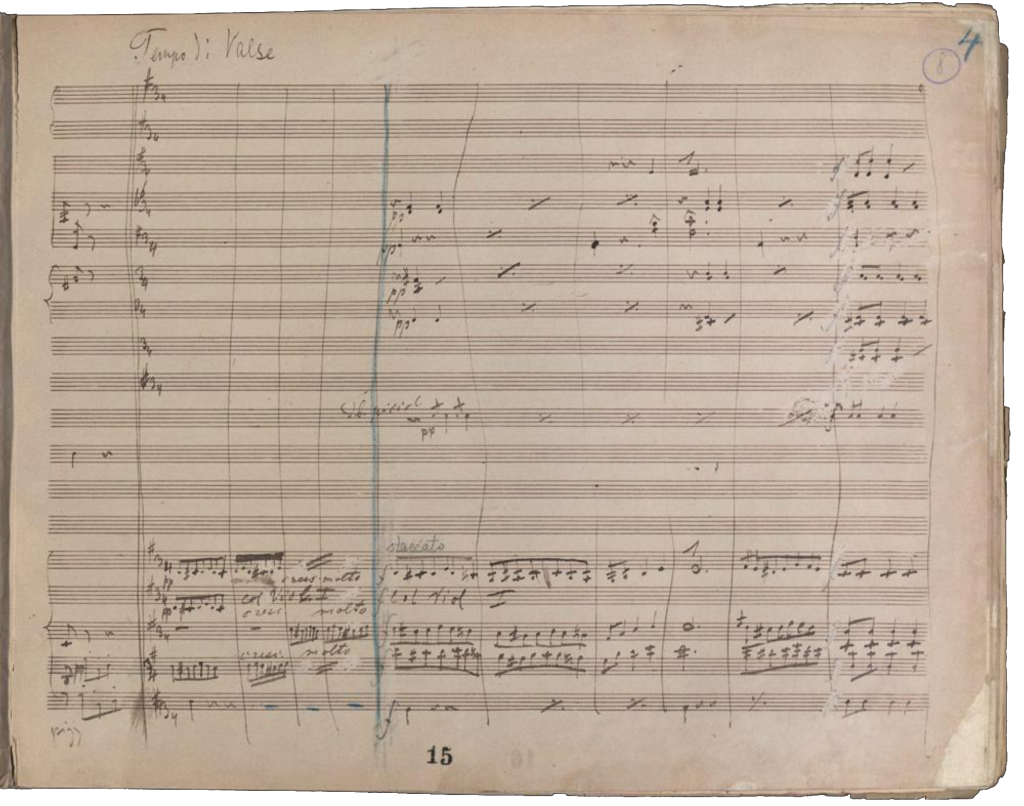 Tempo di Valse
4
8
pp
pp
pp
pp
pp
staccato
cresc molto
pp
col Viol I
f Col Viol I
pp
cresc molto
cresc molto
f
f
pizz
15